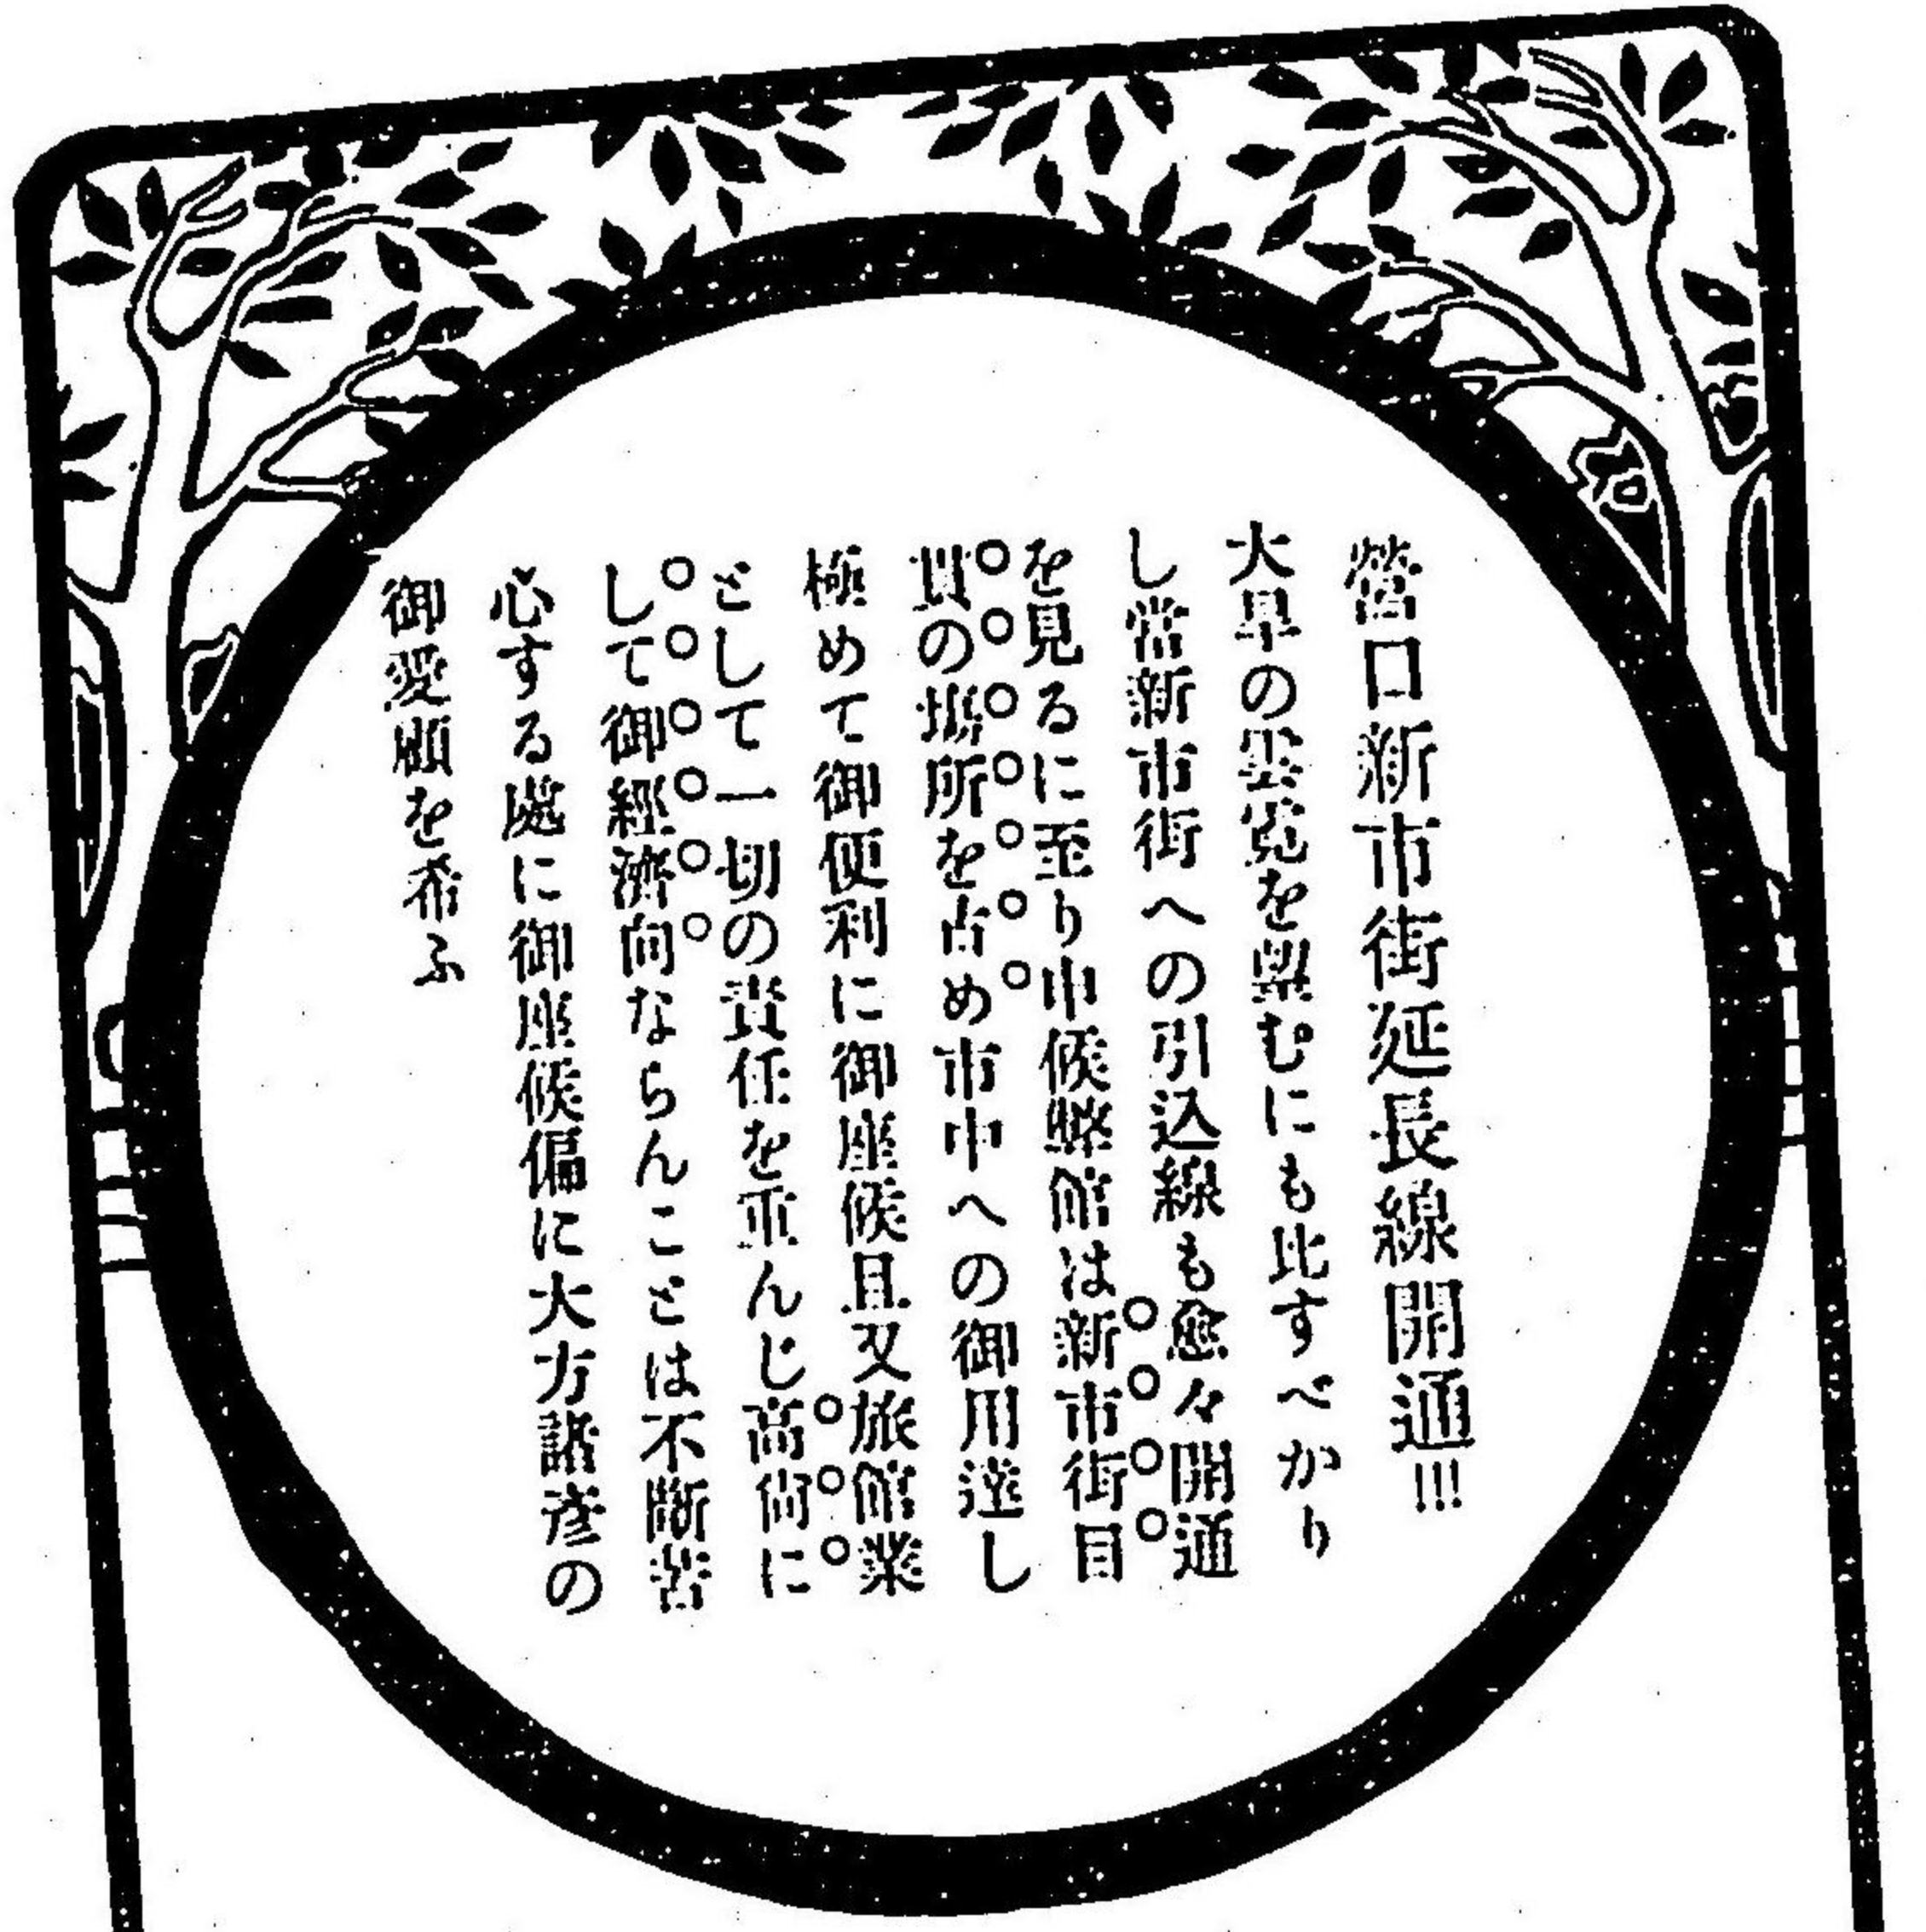 營口新市街延長線開通!!!
大旱の雲霓を望むにも比すべかり
し當新市街への引込線も愈々開通
を見るに至り申候弊館は新市街目
貫の場所を占め市中への御用達し
極めて御便利に御座候且又旅館業
として一切の責任を重んじ高尚に
して御經濟向ならんことは不斷苦
心する處に御座候偏に大方諸彦の
御愛顧を希ふ